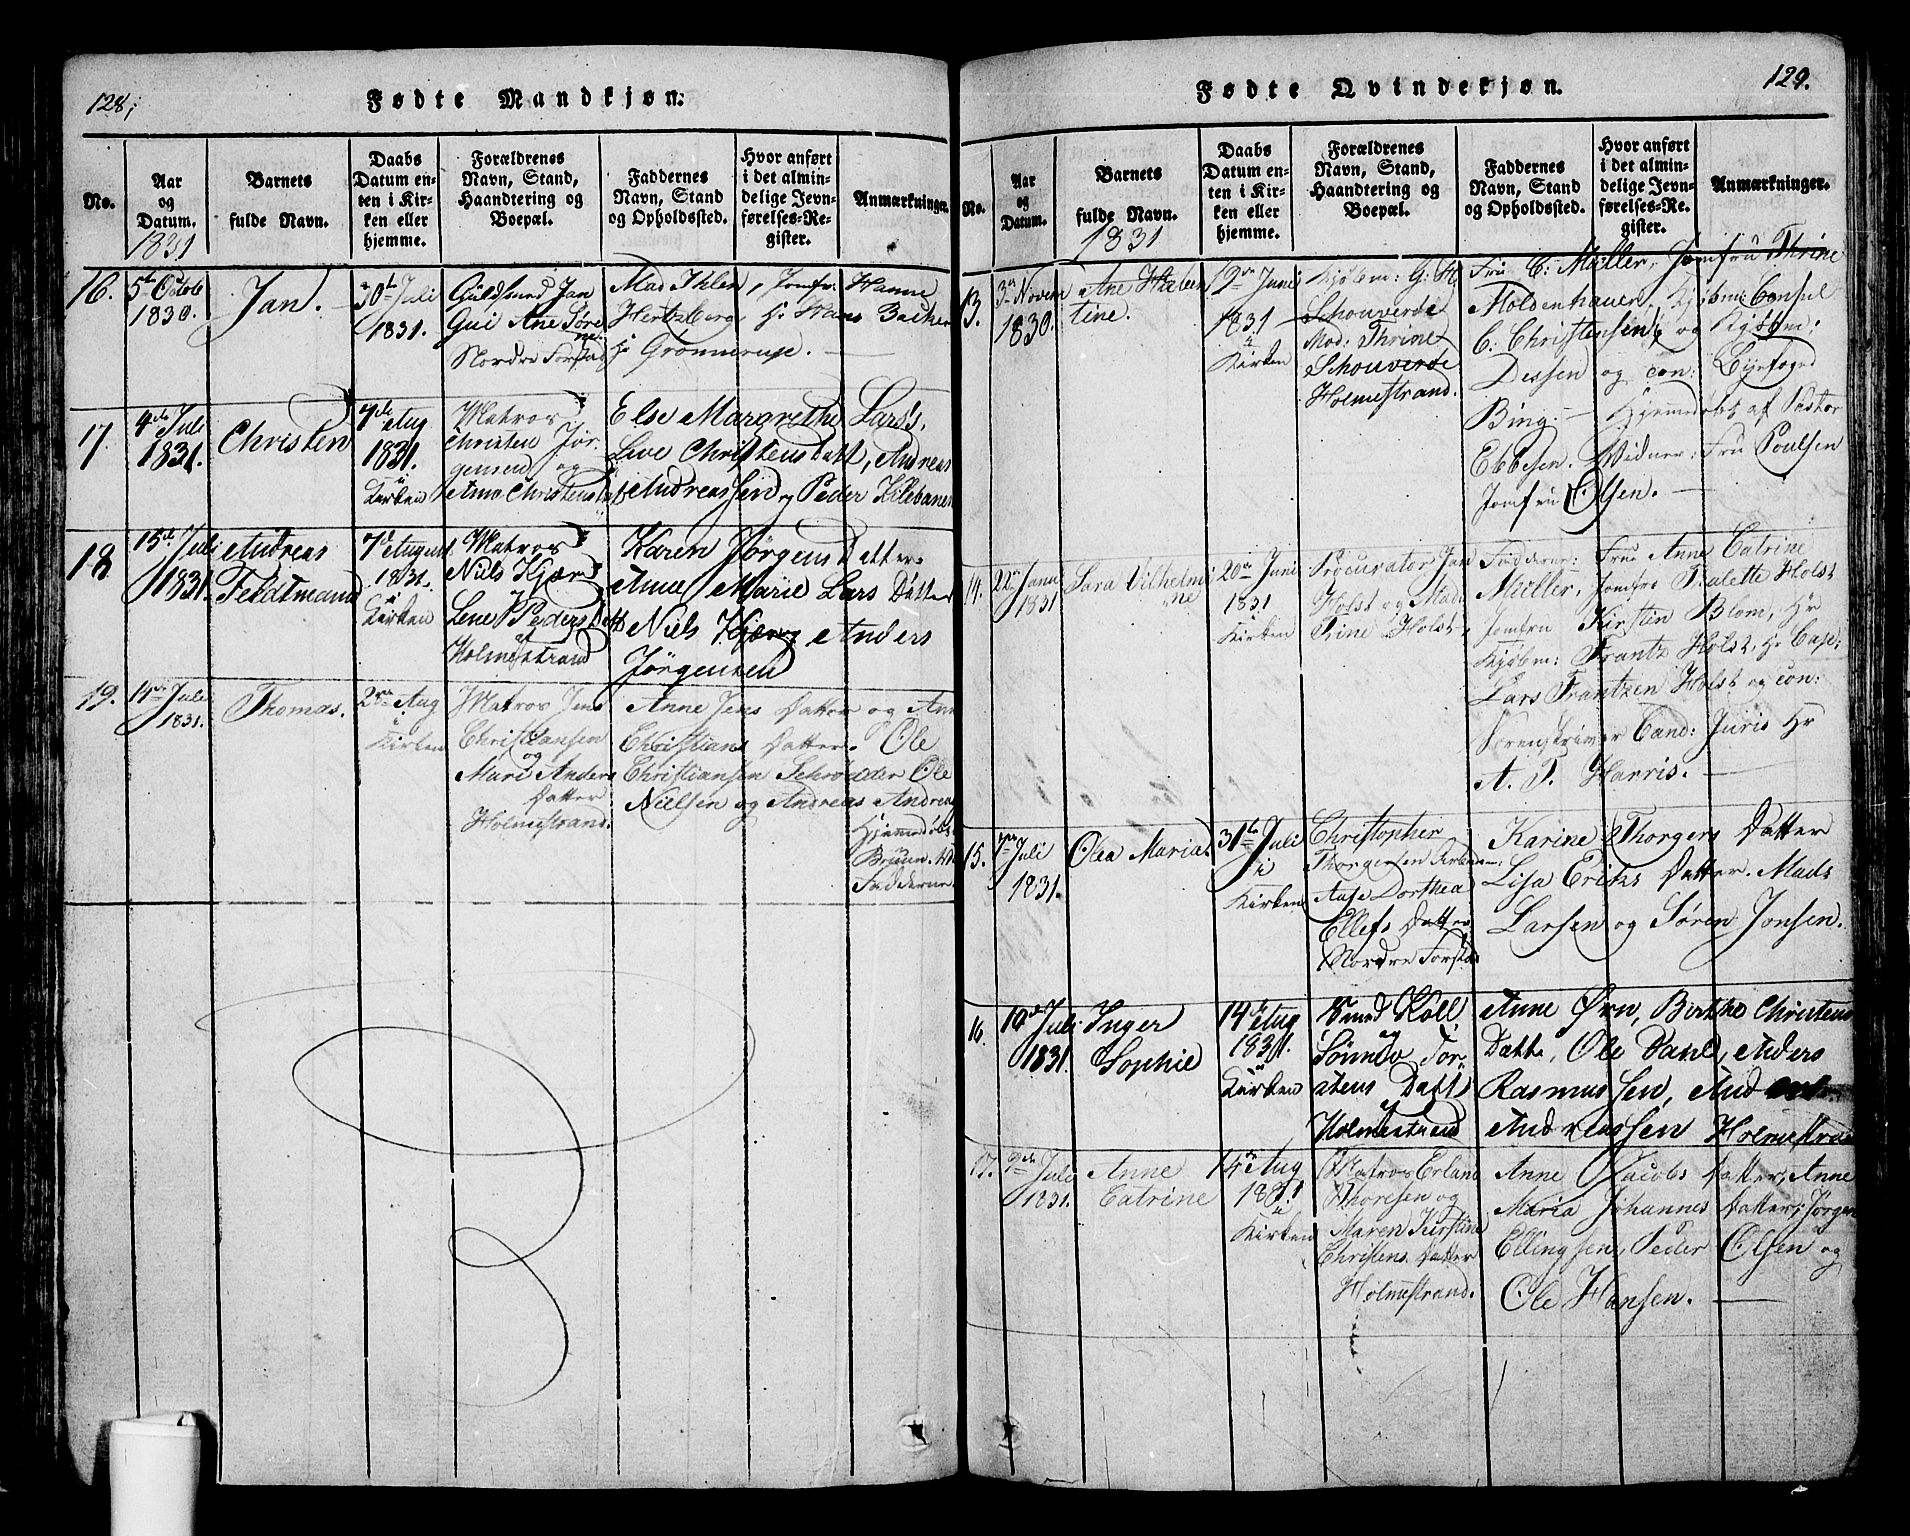 128,
Fødte Mandkjøn.
No.
Aar og Datum.
Barnets fulde Navn.
Daabs Datum enten i Kirken eller hjemme.
Forældrenes Navn, Stand, Haandtering og Boepæl.
Faddernes Navn, Stand og Opholdssted.
Hvor anført i det almindelige Jevnførelses-Register.
Anmærkninger.
1831
16.
5te Octob
1830.
Jan.
30te Juli
1831.
Guldsmed Jan
Gui Ane Søre
Nordre Forstad
Mad Ihlen, Jomfr: Hanne
Hertzberg, Hr. Hans Backer
Hr Grønnerup.
17
4de Juli
1831.
Christen
7de Aug
1831.
i
Kirken
Matros
Christen Jør
gensen og
Anne Christens
Else Margrethe Lars's,
Live Christens Datt, Andreas
Andreassen og Peder Killebanen
18
15de Juli
1831.
Andreas
Feldtmand
7de August
1831.
i
Kirken
Matros
Niels Kjær
Lene Peders
af
Holmestrand
Karen Jørgens Datter
Anne Marie Lars Datter
Niels Kjærog Anders
Jørgensen
19.
14de Juli
1831.
Thomas.
2den Aug
i
Kirken
Matros Jens
Christiansen
og
Mari Anders
Datter
Holmestrand.
Anne Jens Datter og Ann
Christians Datter. Ole
Christiansen Schrødder Ole
Nielsen og Andreas Andreas
Hjemmedøbt
Fadderne.
129.
Fødte Qvindekjøn.
No.
Aar og Datum.
Barnets fulde Navn.
Daabs Datum enten i Kirken eller hjemme.
Forældrenes Navn, Stand, Haandtering og Boepæl.
Faddernes Navn, Stand og Opholdssted.
Hvor anført i det almindelige Jevnførelses-Register.
Anmærkninger.
1831
13.
3die Novem
1830.
Ane
tine.
19de Juni
1831
i
Kirken
Kjøbm: G: H.
Schouverde
Mad: Thrine
Schouverde
Holmestrand.
Fru C: Müller, Jomfru Thrine
Moldenhauer, Kjøbm: Consul
C: Christensen, og Kjøbm:
Dessen og con: Byefoged
Bing. Hjemmedøbt af Pastor
Ebbesen. Vidner: Fru Poulsen
Jomfru Olsen.
14.
22de Janu
1831
Sara Vilhelmi
ne
20de Juni
1831
i
Kirken
Procurator Jan
Holst og Mad
Trine Holst,
Fadderne: Fru Anne Catrine
Müller, Jomfr Tralette Holst
Jomfru Kirstin Blom, Hr
Kjøbm: Frantz Holst, Hr Cap:
Lars Frantzen Holst og con:
Sorenskriver Cand: Juris Hr
A. T. Harris.
15.
7de Juli
1831.
Olea Maria.
31te Juli
i
Kirken
Christopher
Thorgersen
Aase Dorthea
Ellefs Datter
Nordre Forstad
Karine Thorgers Datter
Lisa Eriks Datter. Mads
Larsen og Søren Jonsen.
16.
10de Juli
1831
Inger
Sophie
14de Aug
1831.
i
Kirken
Knud Koll
og
Sønnøv Tor
stens Datt
af
Holmestrand
Anne Ørn, Birthe Christens
Datte, Ole Dahl, Anders
Rasmussen, And
Andreassen Holmestrand
17.
9de Juli
1831.
Anne
Catrine
14de Aug
1831
i
Kirken
Matros Erland
Thoresen og
Maren Kirstine
Christens Datter
Holmestrand.
Anne Jacobs Datter, Anne
Maria Johannes Datter, Jørgen
Ellingsen, Peder Olsen og
Ole Hansen.